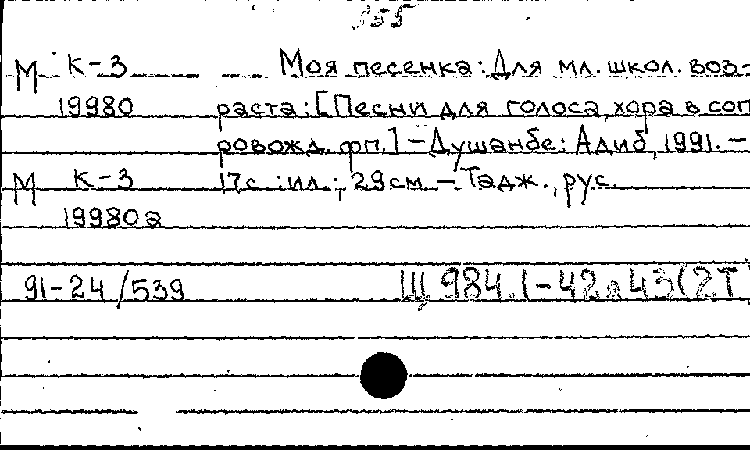 355
М К-3 Моя песенка: Для мл. школ. воз-
19980 раста: [Песни для голоса, хора в соп-
ровожд. фп.] - Душанбе: Адиб, 1991. -
М К-3 17с. : ил.; 29см. - Тадж., рус.
19980а
91-24/539 Щ984.1-42я43(2Т